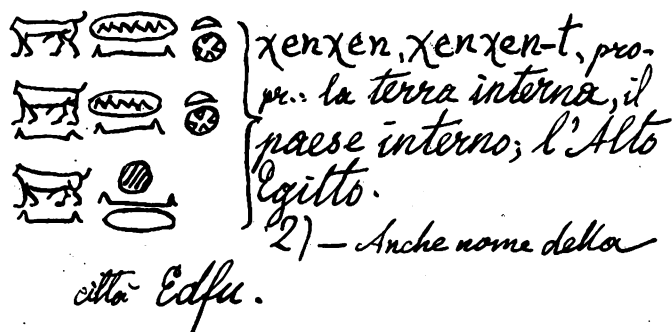 χenχen, χenχen-t, pro-
pr.: la terra interna, il
paese interno; l'Alto
Egitto.
2) — Anche nome della
città Edfu.